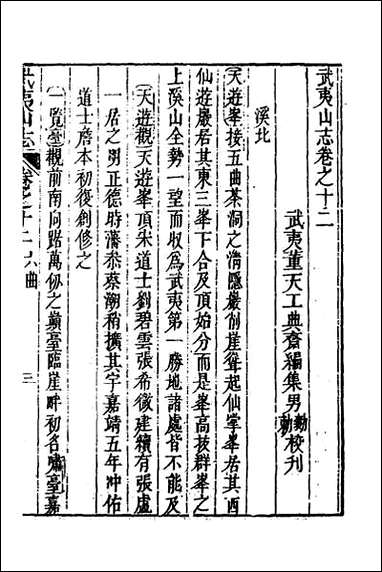 武夷山志卷之十二
武夷董天工典齋編集男 勷 勷 校刊
溪北
天遊峯接五曲茶洞之清隱巖創崖聳起仙掌峯居其西
仙遊巖居其東三峯下合及頂始分而是峯高拔群峯之
上溪山全勢一望而收爲武夷第一勝地諸處皆不能及
天遊觀天遊峯頂宋道士劉碧雲張希微建續有張盧
一居之明正德時藩叅蔡潮稍擴其宇嘉靖五年冲佑
道士詹本初復創修之
一覽臺觀前南向踞萬仭之巔臺臨崖畔初名嘯臺嘉
武夷山志 卷之十二 六曲 三